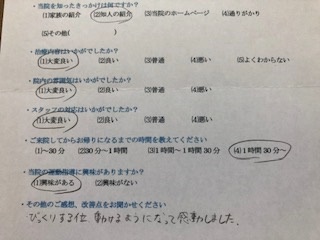 ・当院を知ったきっかけは何ですか?
(1)家族の紹介 (2)知人の紹介 (3)当院のホームページ (4)通りがかり
(5)その他( )
・治療内容はいかがでしたか?
(1)大変良い (2)良い (3)普通 (4)悪い (5)よくわからない
・院内の雰囲気はいかがでしたか?
(1)大変良い (2)良い (3)普通 (4)悪い
・スタッフの対応はいかがでしたか?
(1)大変良い (2)良い (3)普通 (4)悪い
・ご来院してからお帰りになるまでの時間を教えてください
(1)~30分 (2)30分~1時間 (3)1時間~1時間30分 (4)1時間30分~
・当院の運動指導に興味がありますか?
(1)興味がある (2)興味がない
・その他のご感想、改善点をお聞かせください
びっくりする位 動けるようになって感動しました。